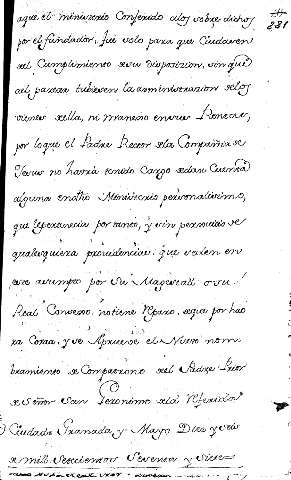 281
aque el ministerio Conferido alos sobre dichos
por el fundador, fué solo para que Cuidasen
del Cumplimiento de su Disposicion, sin que
del parezca tubiesen la administrazion delos
vienes della, ni manexo en sus Rentas,
por lo que el Padre Rector dela Compañia de
Jesus no havrá tenido Cargo dedar Cuenta
alguna en dho Ministerio personalissimo,
que le pertenecia por tanto, y sin perjuicio de
qualesquiera providencias que se den en
este asumpto por Su Magestad o su
Real Consexo, no tiene reparo, aqua por haora
ra Corra, y se Apruebe el Nuevo nom
bramiento de Compatrono del Padre Prior
de Señor San Geronimo dela Referida
Ciudad Granada y Mayo Diez y seis
de mil Setecientos Sesenta y Siete